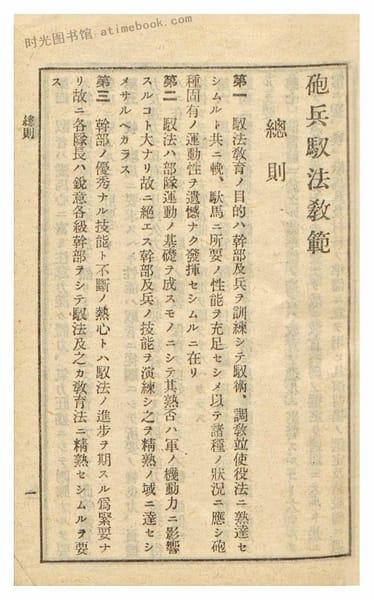 时光图书馆 atimebook.com
砲兵馭法教範
總則
第一 馭法教育ノ目的ハ幹部及兵ヲ訓練シテ馭術、調教竝使役法ニ熟達セ
シムルト共ニ輓、馱馬ニ所要ノ性能ヲ充足セシメ以テ諸種ノ狀況ニ應シ砲
種固有ノ運動性ヲ遺憾ナク發揮セシムルニ在リ
第二 馭法ハ部隊運動ノ基礎ヲ成スモノニシテ其熟否ハ軍ノ機動力ニ影響
スルコト大ナリ故ニ絕エス幹部及兵ノ技能ヲ演練シ之ヲ精熟ノ域ニ達セシ
メサルヘカラス
第三 幹部ノ優秀ナル技能ト不斷ノ熱心トハ馭法ノ進步ヲ期スル爲緊要ナ
リ故ニ各隊長ハ銳意各級幹部ヲシテ馭法及之カ教育法ニ精熟セシムルヲ要
ス
總則
一